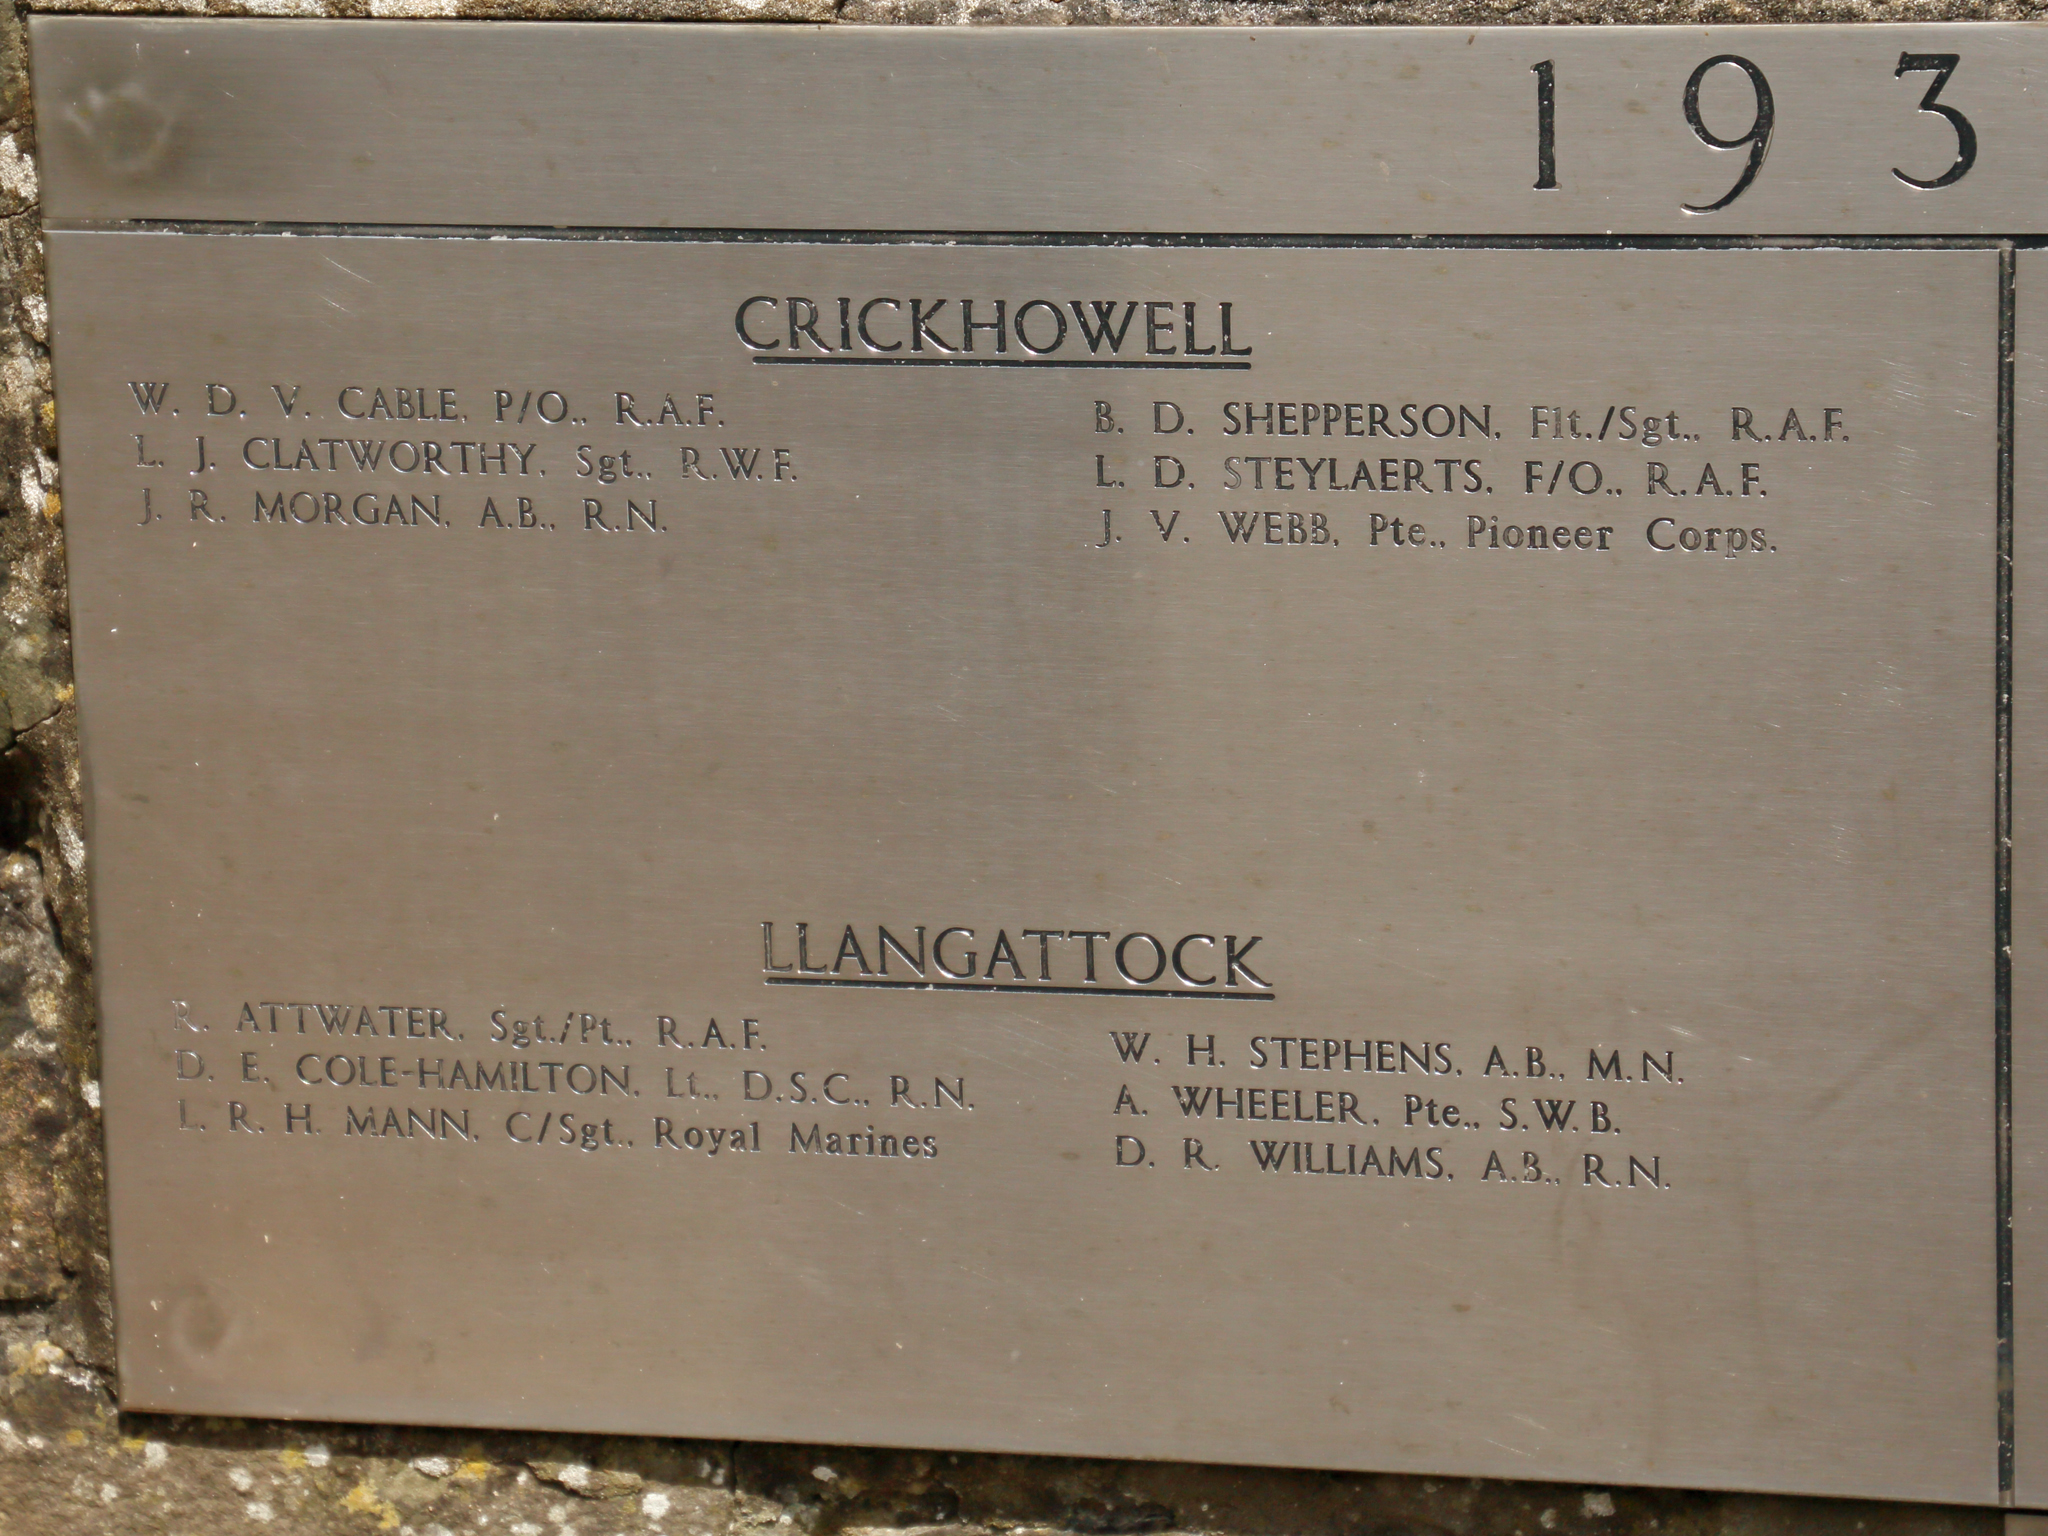 193
CRICKHOWELL
W. D. V. CABLE, P/O., R.A.F.
L. J. CLATWORTHY, Sgt., R.W.F.
J. R. MORGAN, A.B., R.N.
B. D. SHEPPERSON, Flt./Sgt., R.A.F.
L. D. STEYLAERTS, F/O., R.A.F.
J. V. WEBB, Pte., Pioneer Corps.
LLANGATTOCK
R. ATTWATER, Sgt./Pt., R.A.F.
D. E. COLE-HAMILTON, Lt., D.S.C., R.N.
L. R. H. MANN, C/Sgt., Royal Marines
W. H. STEPHENS, A.B., M.N.
A. WHEELER, Pte., S.W.B.
D. R. WILLIAMS, A.B., R.N.